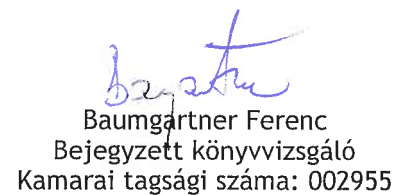 Baumgartner Ferenc
Bejegyzett könyvvizsgáló
Kamarai tagsági száma: 002955